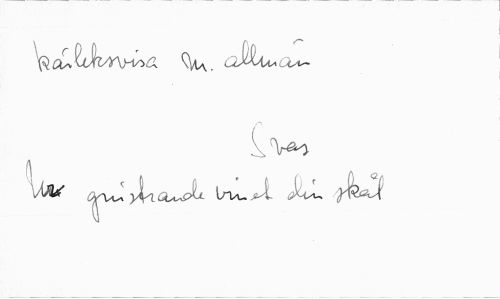 kärleksvisa m. allmän
Svas
Ur gnistrande vinet din skål